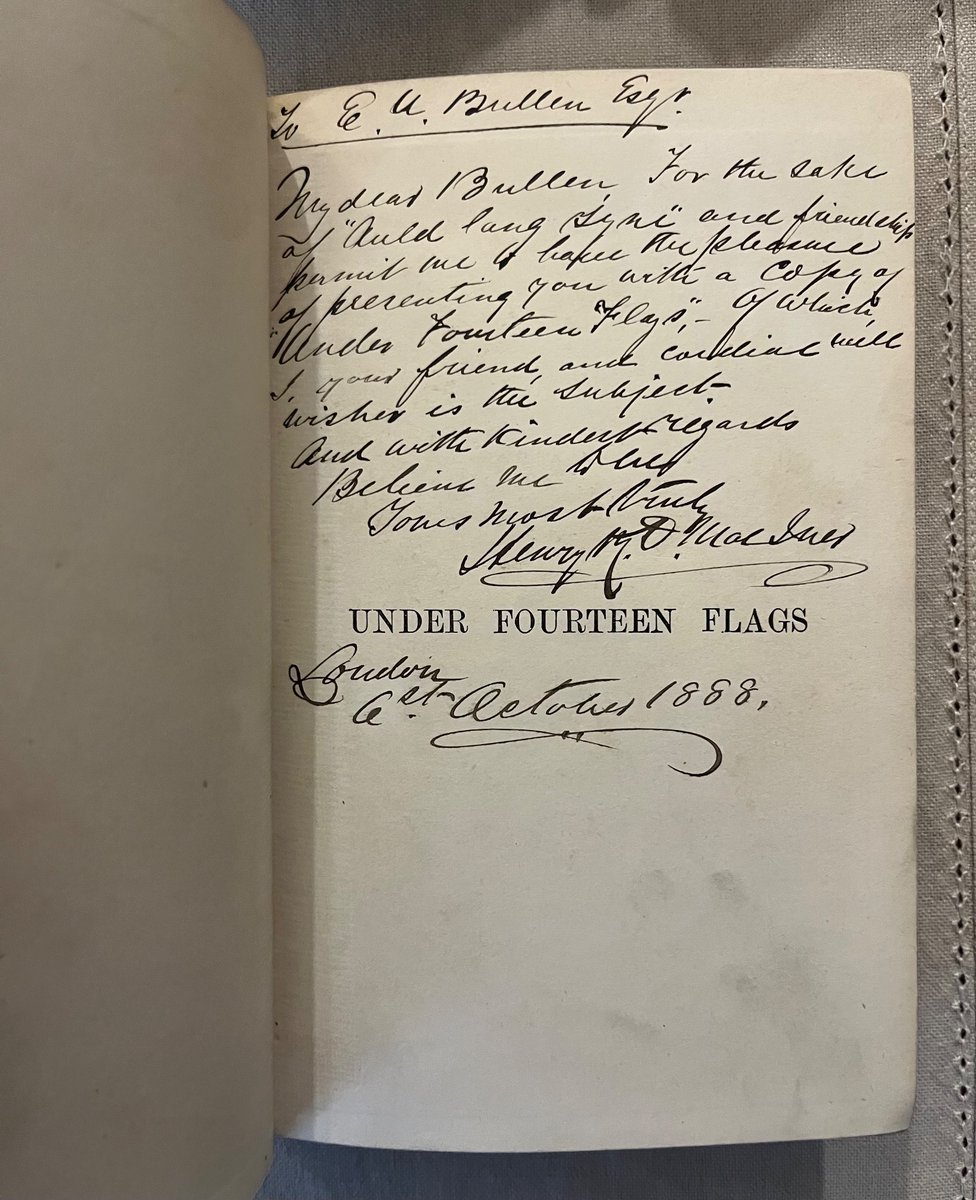 To E. U. Bullen Esqr.
My dear Bullen, For the sake
of "Auld lang Syne" and friendship
permit me to have the pleasure
of presenting you with a copy of
"Under Fourteen Flags", – Of which,
I, your friend, and cordial well
wisher is the subject.
And with kindest regards
Believe me to be
Yours most truly
Henry R. D. MacIver
UNDER FOURTEEN FLAGS
London
6st October 1888.